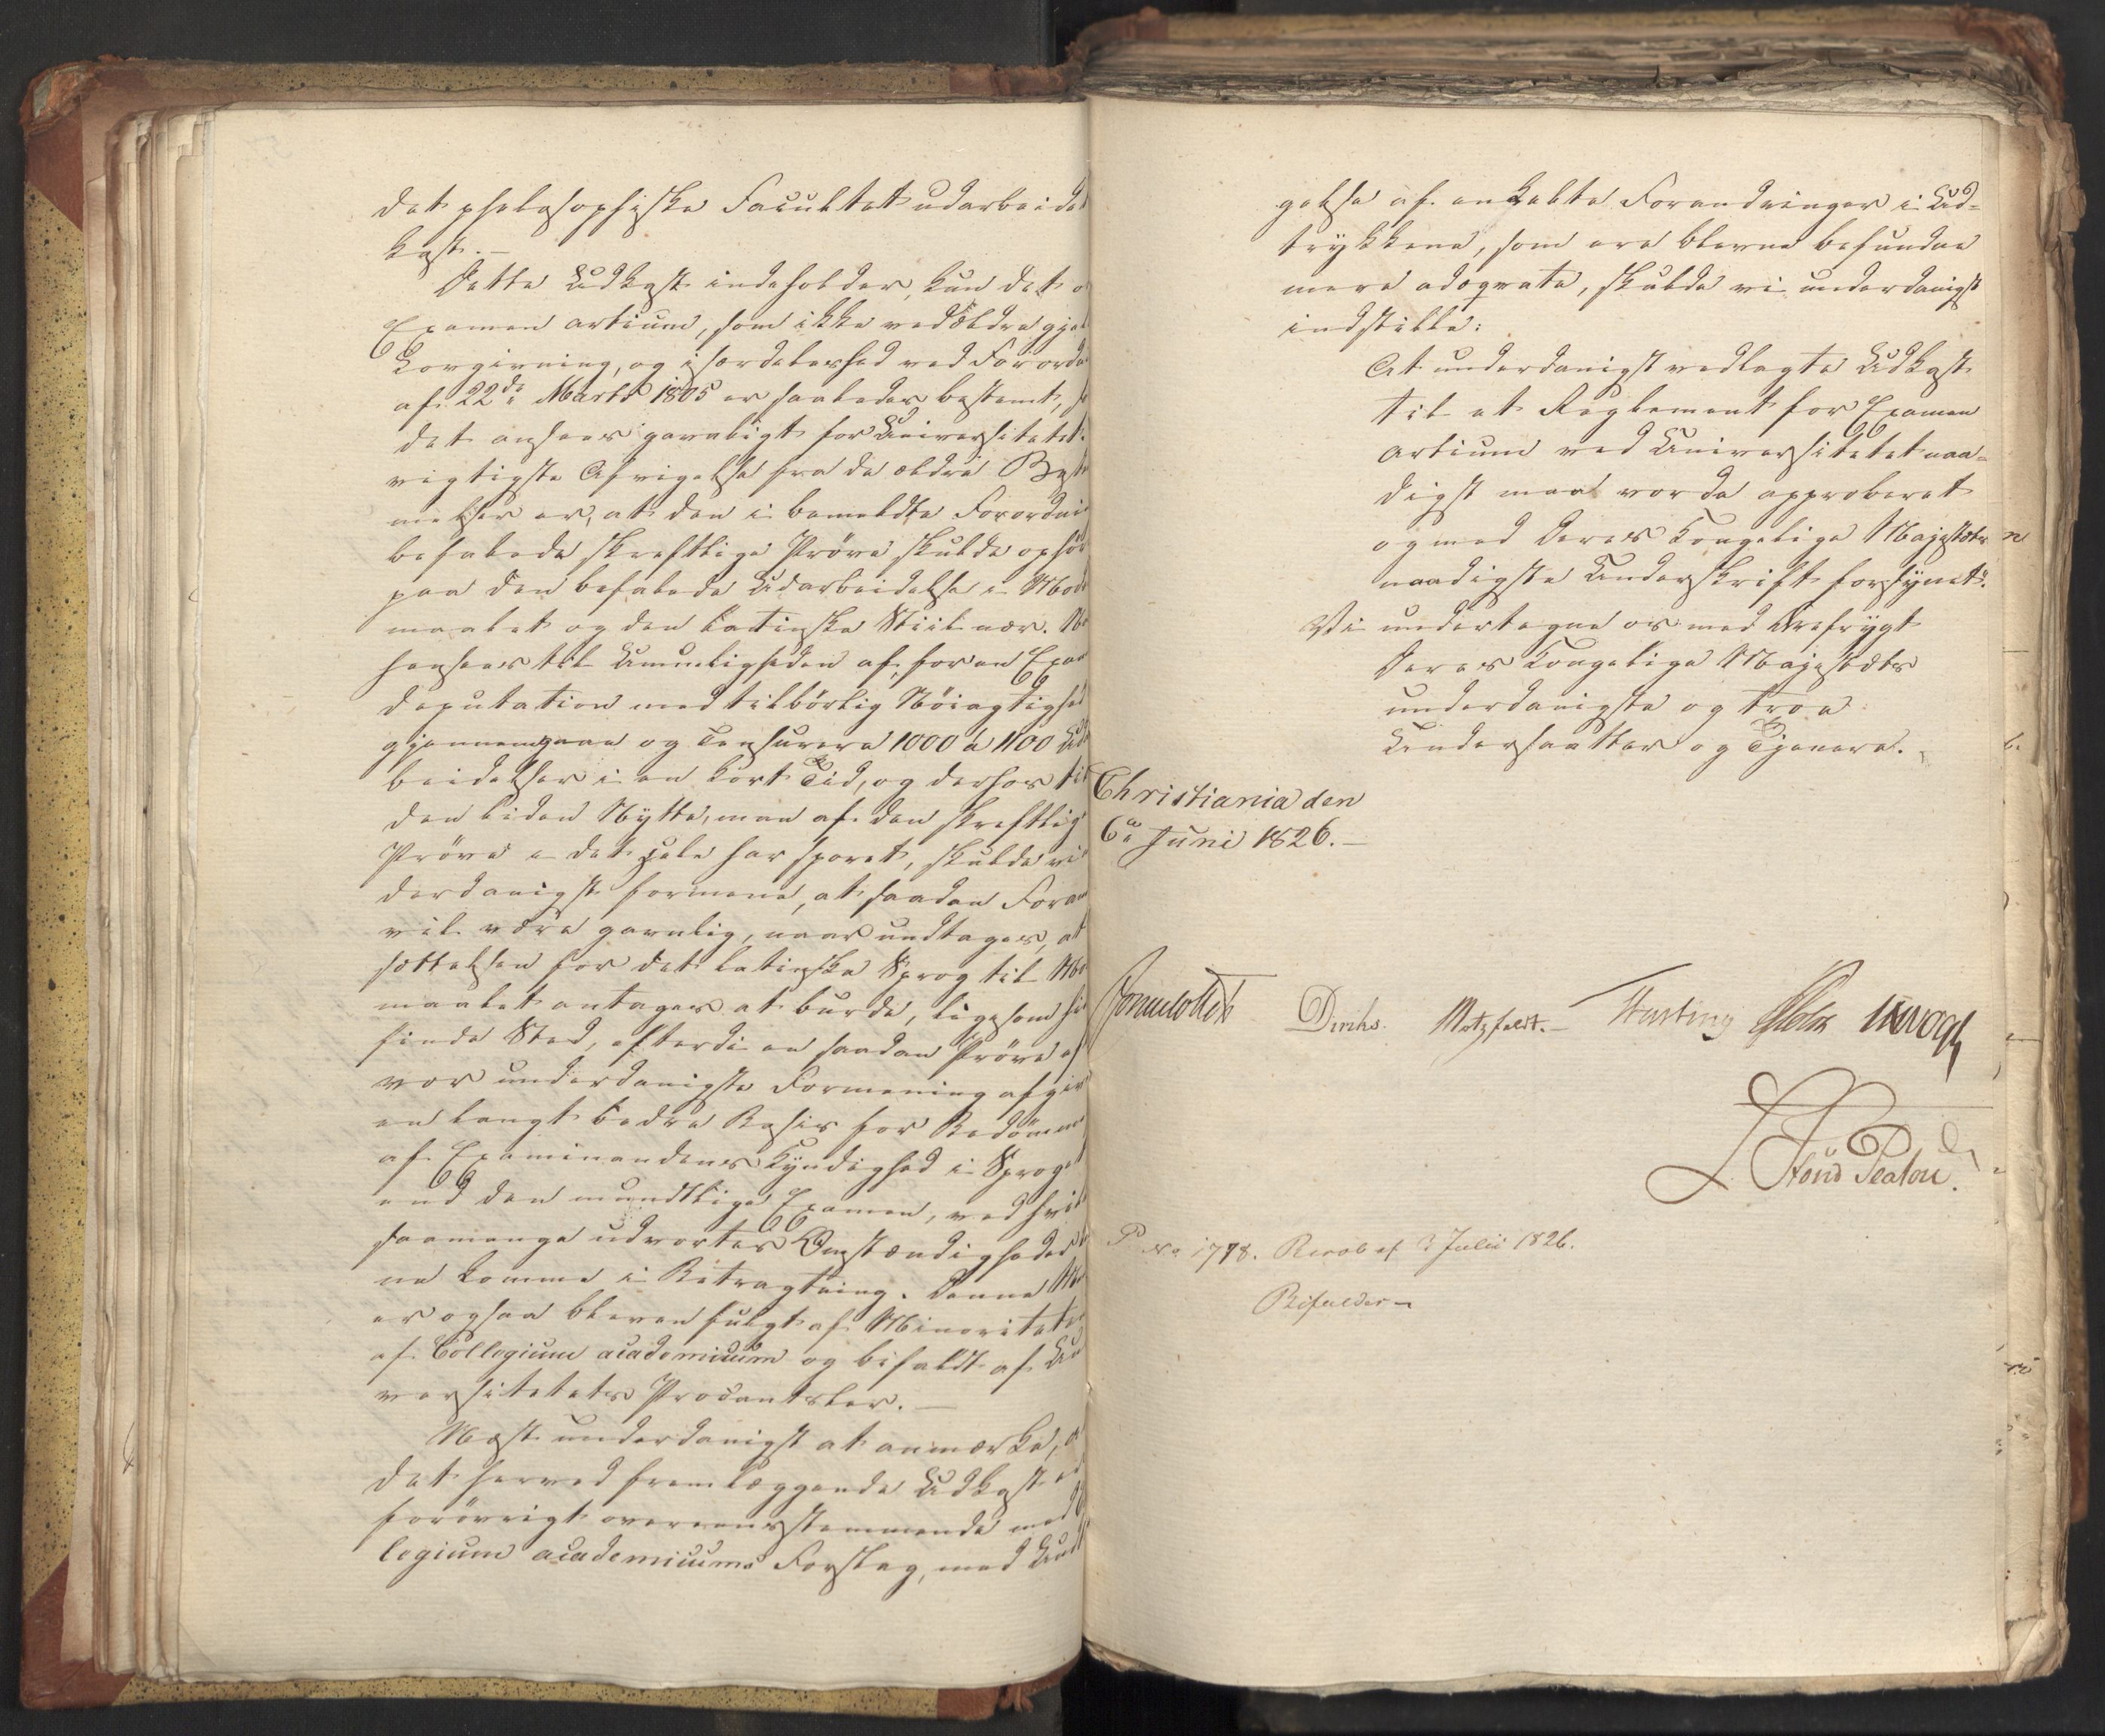 det philosophiske Facultet udarbeidet
kast. —
Dette Udkast indeholder, kun det o
Examen artium, som ikke ved ældre gjel
Lovgivning, og i særdeleshed ved Forord
af 22de Marts 1805 er saaledes bestemt, s
det ansees gavnligt for Universitetet.
vigtigste Afvigelse fra de ældre Beste
melser er, at den i bemeldte Forordni
befalede skriftlige Prøve skulde ophør
paa den befalede Udarbeidelse i Mod
maalet og den latinske Stiil nær. N
henseer til Umueligheden af, for en Exam
deputation med tilbörlig Nöiagtighed
gjennemgaae og Censurere 1000 à 1100 Ud
beidelser i en kort Tid, og derhos til
den liden Nytte, man af den skriftlig
Prøve i det hele har sporet, skulde vi
derdanigst formene, at saadan Foran
vil være gavnlig, naar undtages, at
sættelsen for det latinske Sprog til Mo
maalet antages at burde, ligesom hi
finde Sted, efterdi en saadan Prøve ef
vor underdanigste Formening afgiv
en langt bedre Basis for Bedømm
af Examinandens Kyndighed i Sproget
end den mundtlige Examen, ved hvil
saamange udvortes Omstændigheder
ne komme i Betragtning. Denne Me
er ogsaa bleven fulgt af Minoriteten
af Collegium academicum og bifaldt af Un
versitetets Procantsler. —
Næst underdanigst at anmærke, a
det herved fremlæggende Udkast e
forövrigt overeensstemmende med
legium academicums Forslag, med Und
gelse af enkelte Forandringer i Ud-
trykkene, som ere blevne befundne
mere adeqvate, skulde vi underdanigst
indstille:
At underdanigst vedlagte Udkast
til et Reglement for Examen
artium ved Universitetet naa-
digst maa vorde approberet
og med Deres Kongelige Majestæts
naadigste Underskrift forsynet.
Vi undertegne os med Ærefrygt
Deres Kongelige Majestæts
underdanigste og troe
Undersaatter og Tjenere.
Christiania den
6te Juni 1826. —
Diriks. Motzfeldt. — Fasting Holst JHVogt
P No 1778. Resol af 3 Julii 1826.
Bifaldes